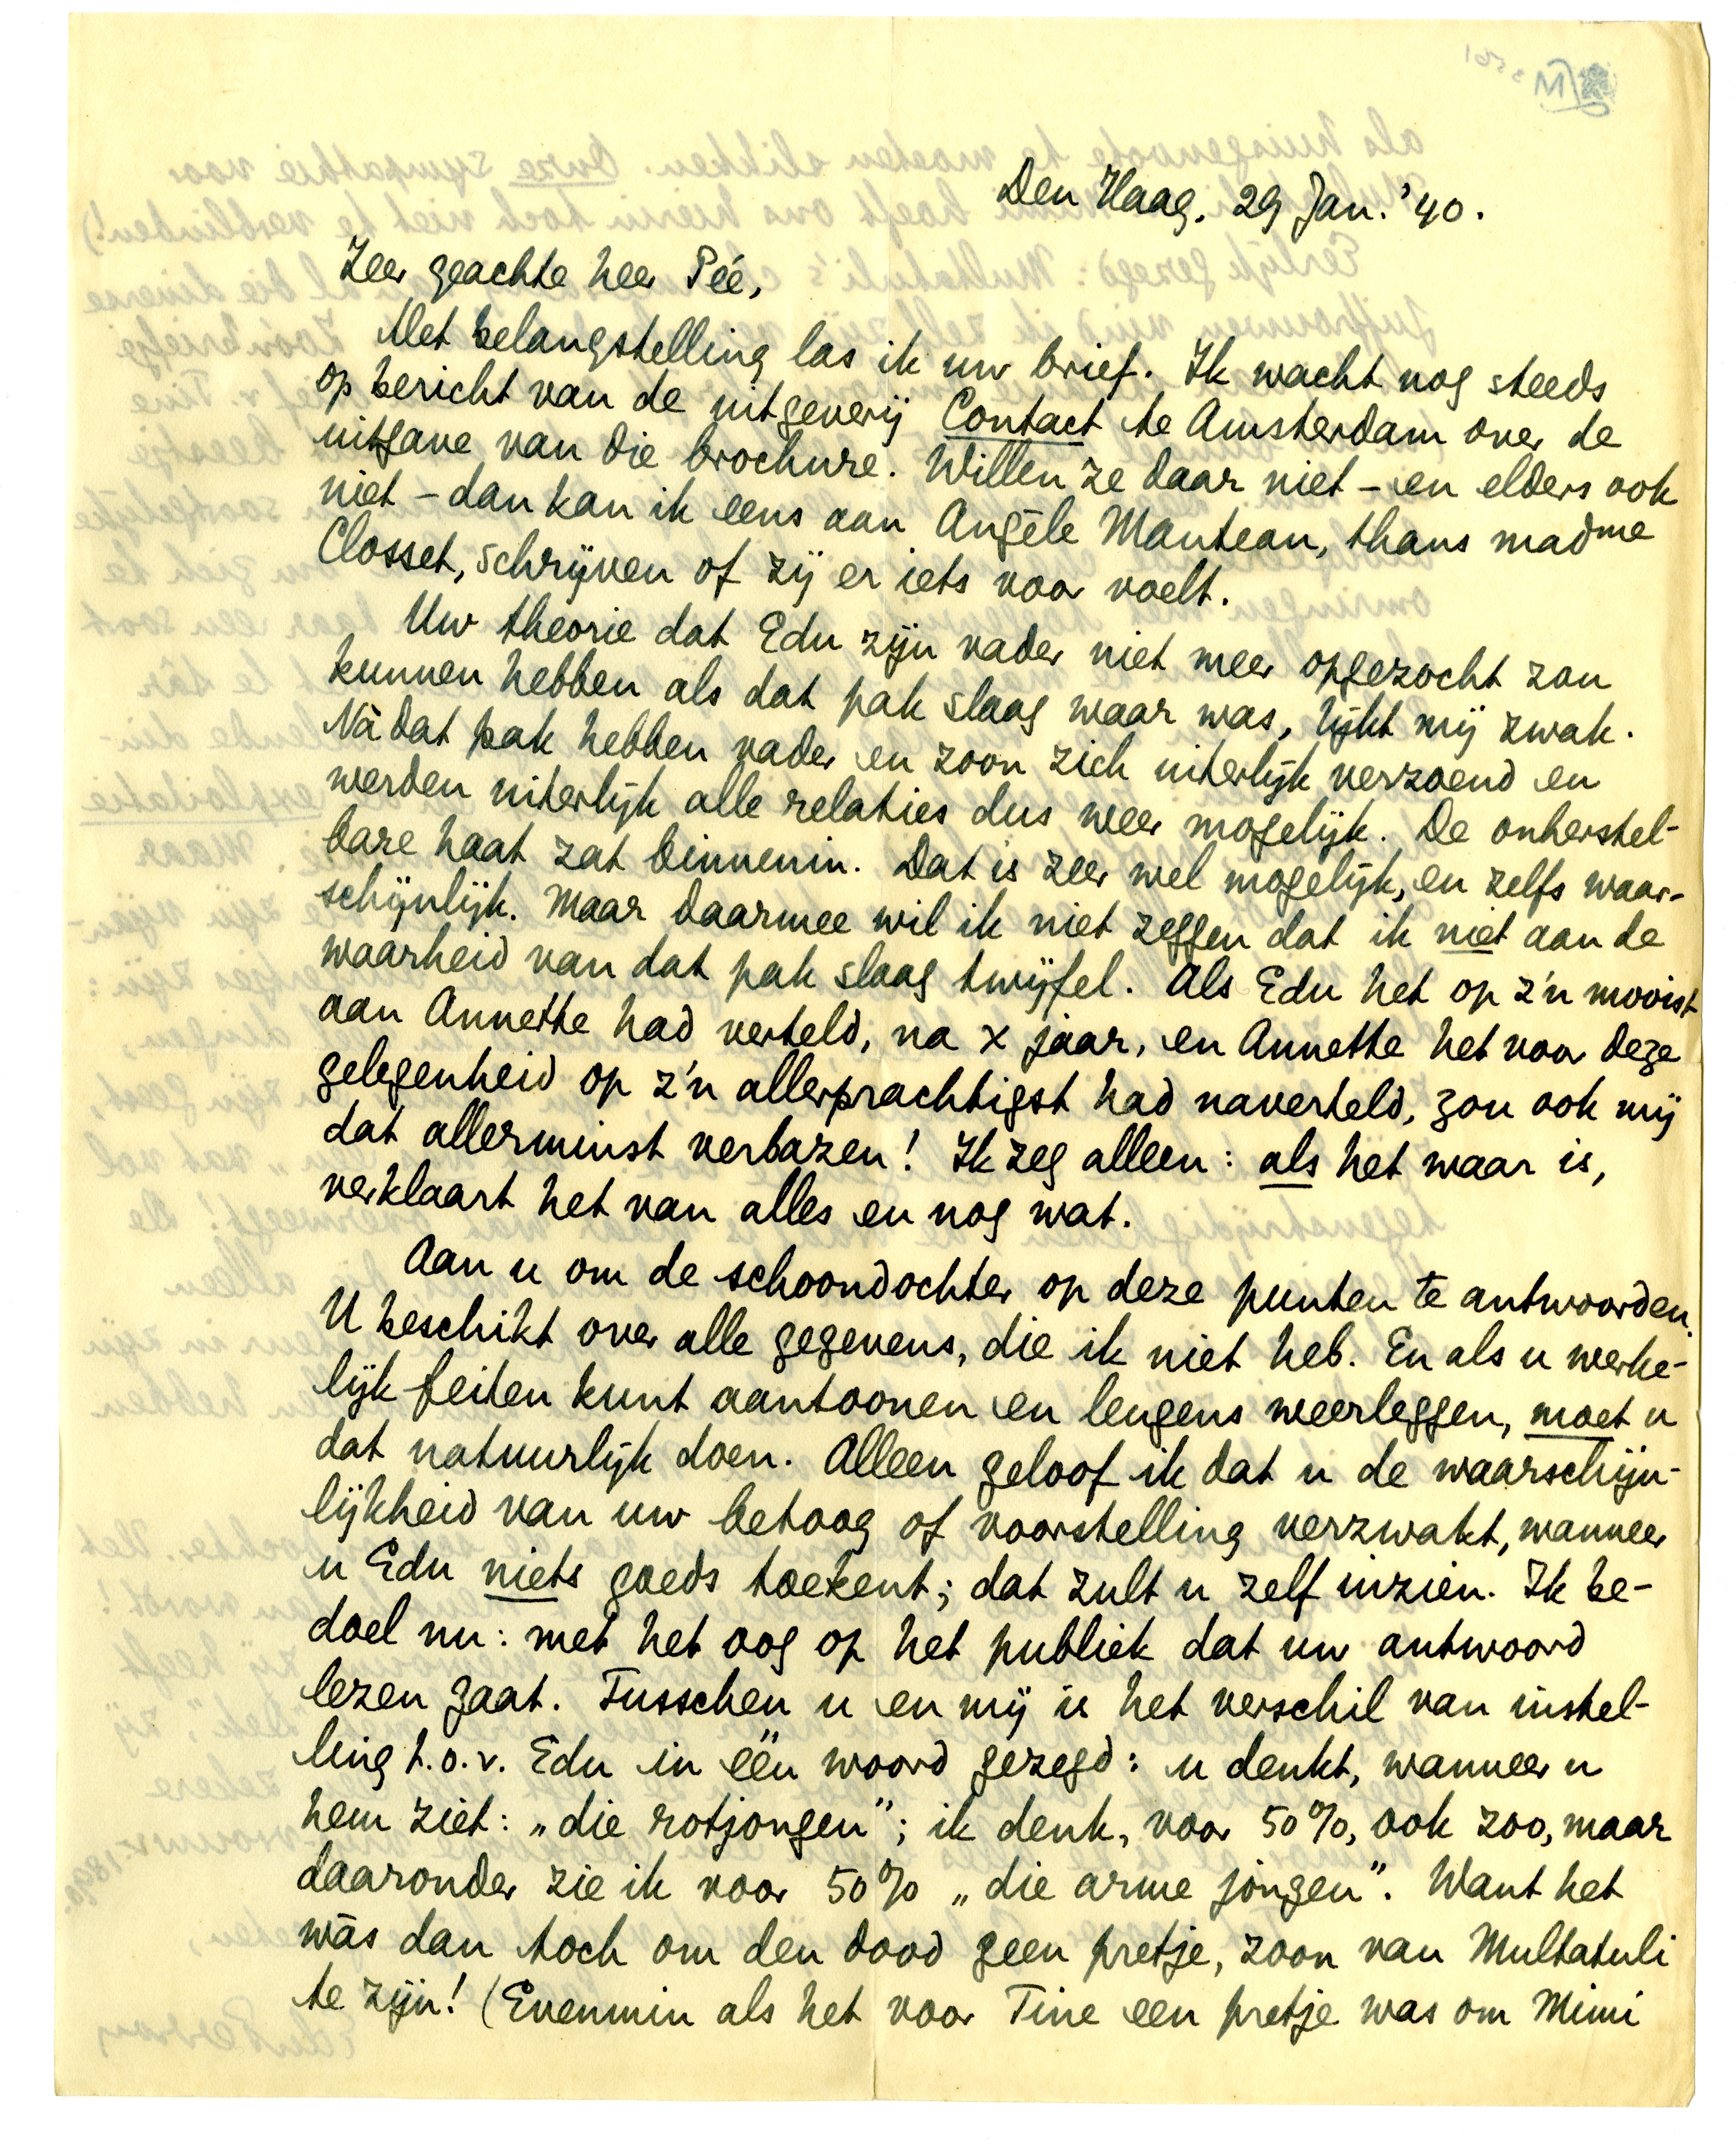 Den Haag, 29 Jan. '40.
Zeer geachte heer Pée,
Met belangstelling las ik uw brief. Ik wacht nog steeds
op bericht van de uitgeverij Contact te Amsterdam over de
uitgave van die brochure. Willen ze daar niet – en elders ook
niet – dan kan ik eens aan Angèle Manteau, thans madme
Closset, schrijven of zij er iets voor voelt.
Uw theorie dat Edu zijn vader niet meer opgezocht zou
kunnen hebben als dat pak slaag waar was, lijkt mij zwak.
Nà dat pak hebben vader en zoon zich uiterlijk verzoend en
werden uiterlijk alle relaties dus weer mogelijk. De onherstel-
bare haat zat binnenin. Dat is zeer wel mogelijk, en zelfs waar-
schijnlijk. Maar daarmee wil ik niet zeggen dat ik niet aan de
waarheid van dat pak slaag twijfel. Als Edu het op z'n mooist
aan Annette had verteld, na x jaar, en Annette het voor deze
gelegenheid op z'n allerprachtigst had naverteld, zou ook mij
dat allerminst verbazen! Ik zeg alleen: als het waar is,
verklaart het van alles en nog wat.
Aan u om de schoondochter op deze punten te antwoorden.
U beschikt over alle gegevens, die ik niet heb. En als u werke-
lijk feiten kunt aantoonen en leugens weerleggen, moet u
dat natuurlijk doen. Alleen geloof ik dat u de waarschijn-
lijkheid van uw betoog of voorstelling verzwakt, wanneer
u Edu niets goeds toekent; dat zult u zelf inzien. Ik be-
doel nu: met het oog op het publiek dat uw antwoord
lezen gaat. Tusschen u en mij is het verschil van instel-
ling t.o.v. Edu in één woord gezegd: u denkt, wanneer u
hem ziet: „die rotjongen"; ik denk, voor 50%, ook zoo, maar
daaronder zie ik voor 50% „die arme jongen". Want het
wás dan toch om den dood geen pretje, zoon van Multatuli
te zijn! (Evenmin als het voor Tine een pretje was om Mimi